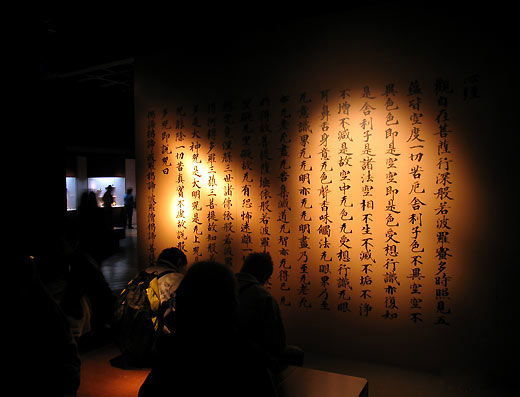 心経
觀自在菩薩行深般若波羅蜜多時照見五
蘊皆空度一切苦厄舍利子色不異空空不
異色色即是空空即是色受想行識亦復如
是舍利子是諸法空相不生不滅不垢不淨
不增不減是故空中无色无受想行識无眼
耳鼻舌身意无色聲香味觸法无眼界乃至
无意識界无无明亦无无明盡乃至无老死
亦无老死盡无苦集滅道无智亦无得已无
所得故菩提薩埵依般若波羅
罣礙无罣礙故无有恐怖遠離
三世諸佛依般若波羅
得阿耨多羅三藐三菩提故知般
多是大神咒是大明咒是无上咒
咒能除一切苦真實不虛故說般
多咒即說咒曰
揭諦揭諦般羅揭諦般羅僧揭諦